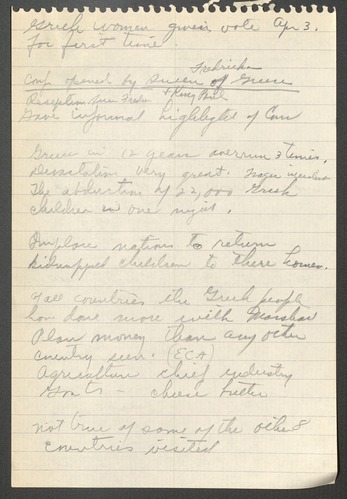 Greek women given vote Apr 3.
for first time
Fredricka
Conf opened by Queen of Greece
+ King Paul
Reception
Gave informal highlights of Conf
Greece in 12 years overrun 3 times.
Devastation very great.
The abduction of 22,000 Greek
children in one night.
Implore nations to return
kidnapped children to there homes.
Of all countries the Greek people
have done more with Marshall
Plan money than any other
country seen. (ECA)
Agriculture chief industry
Goats - cheese butter
not true of some of the other 8
countries visited